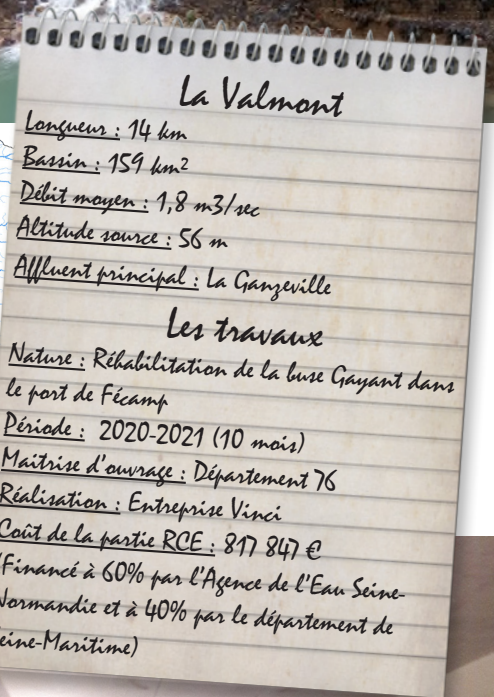 La Valmont
Longueur : 14 km
Bassin : 159 km²
Débit moyen : 1,8 m3/sec
Altitude source : 56 m
Affluent principal : La Ganzeville
Les travaux
Nature : Réhabilitation de la buse Gayant dans
le port de Fécamp
Période : 2020-2021 (10 mois)
Maitrise d'ouvrage : Département 76
Réalisation : Entreprise Vinci
Coût de la partie RCE : 817 847 €
(Financé à 60% par l'Agence de l'Eau Seine-
Normandie et à 40% par le département de
Seine-Maritime)